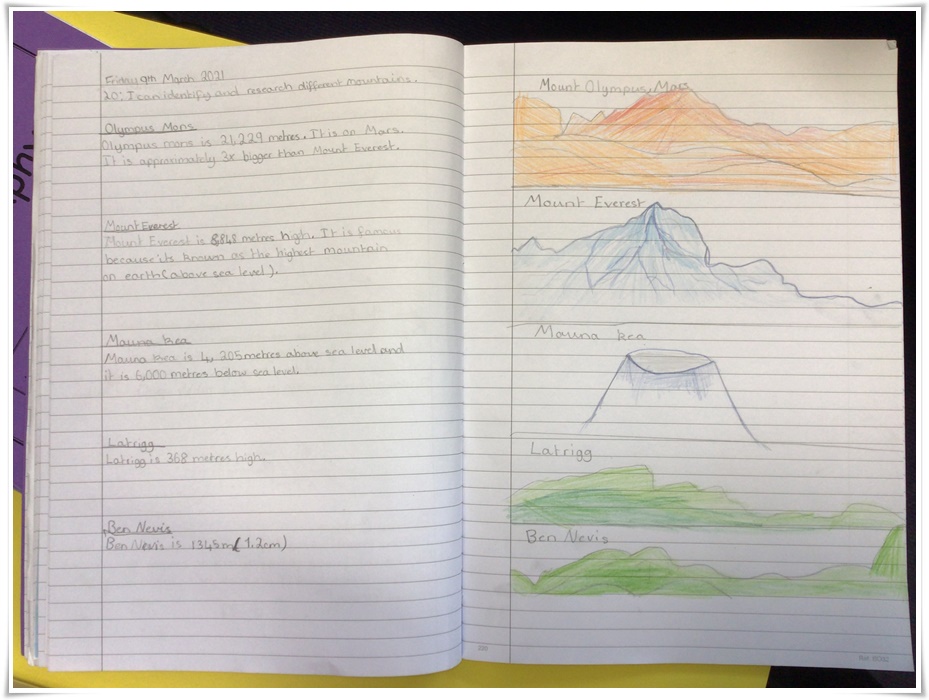 Friday 9th March 2021
LO: I can identify and research different mountains.
Olympus Mons
Olympus mons is 21,229 metres. It is on Mars.
It is approximately 3x bigger than Mount Everest.
Mount Everest
Mount Everest is 8848 metres high. It is famous
because its known as the highest mountain
on earth (above sea level).
Mauna kea
Mauna kea is 4,205 metres above sea level and
it is 6,000 metres below sea level.
Latrigg
Latrigg is 368 metres high.
Ben Nevis
Ben Nevis is 1345m (1.2cm)
Mount Olympus, Mars
Mount Everest
Mauna kea
Latrigg
Ben Nevis